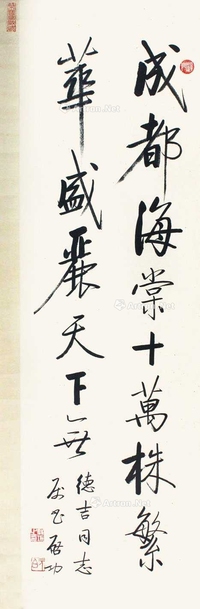 成都海棠十萬株繁
華盛麗天下無
德吉同志
屬書 啟功